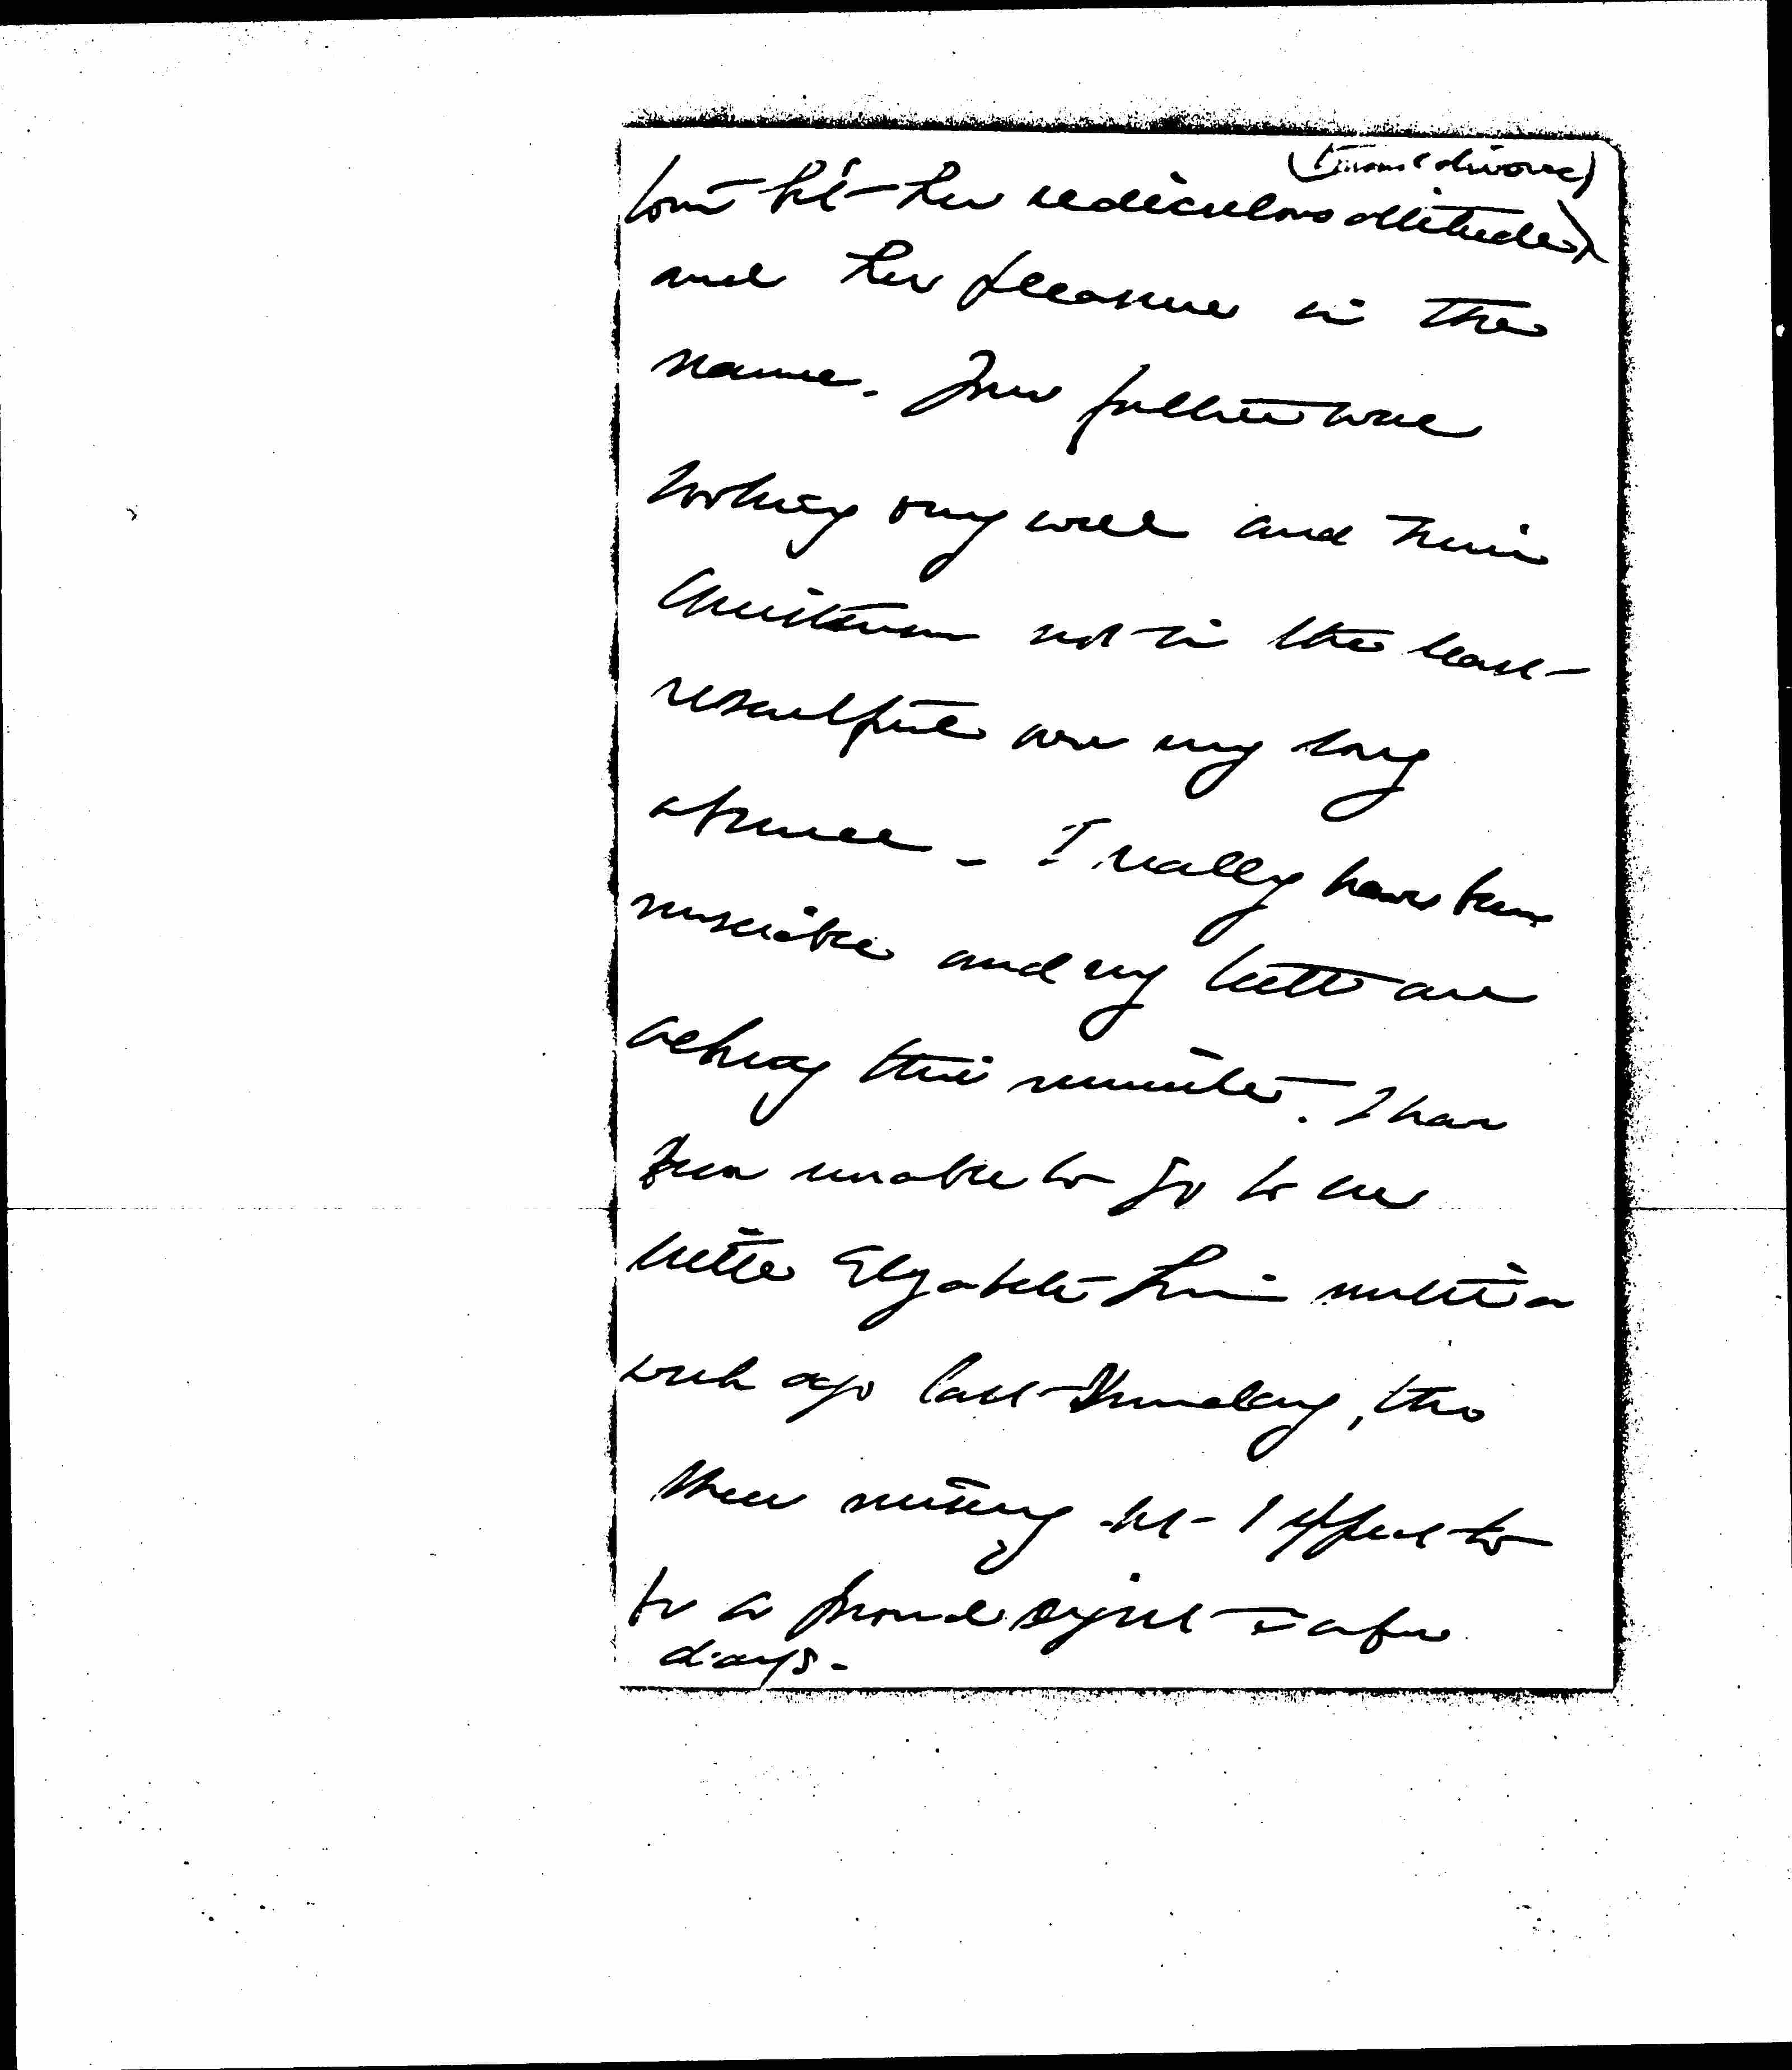 divorce)
her rediculous attitude)
and her pleasure in the
name. Your father was
looking very well and
not in the least
resentful over my long
absence - I really have been
miserable and my teeth are
aching this minute. I have
been unable to go to see
little Elizabeth until a
week ago last Thursday, tho
then nursing but I expect to
be a proud sight in a few
days -